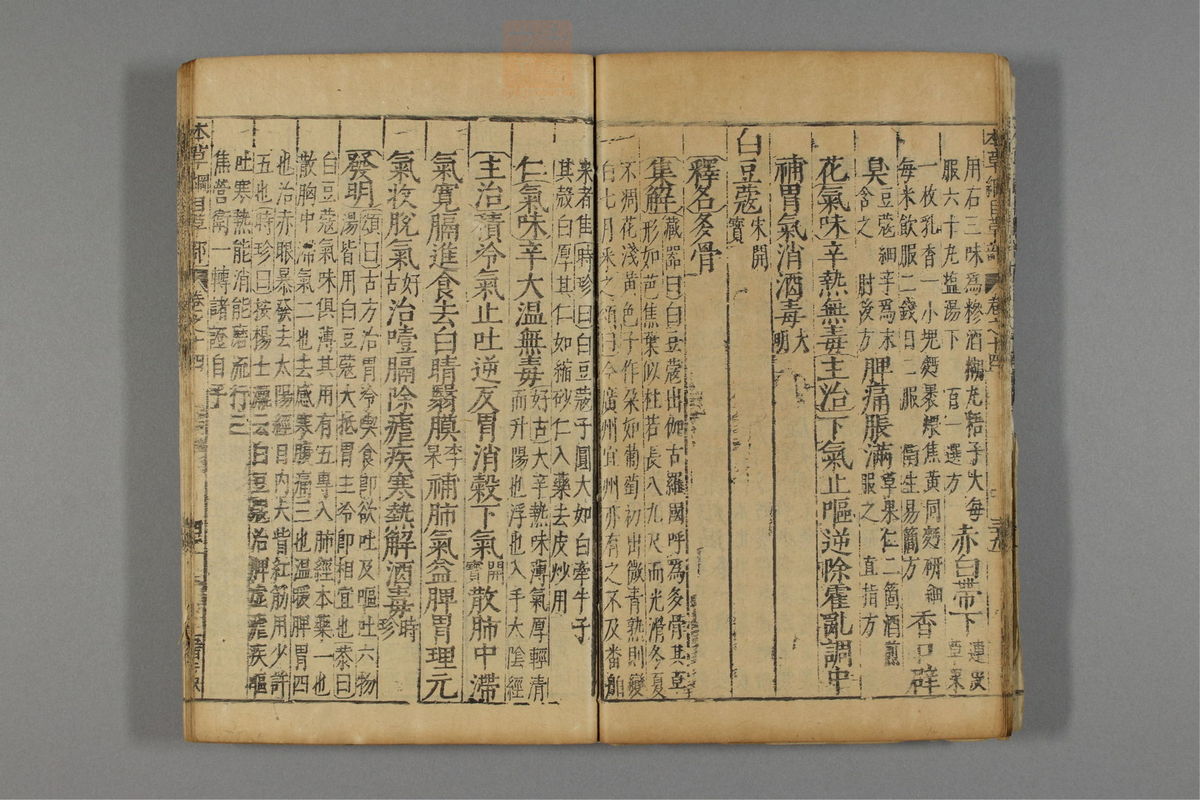 本草綱目草部 卷之十四
用石三味爲糝酒糊丸梧子大每
服六十丸塩湯下 百一選方
赤白帶下 連皮
草果
一枚乳香一小塊麪裹煨焦黃同麪硏細
每米飲服二錢日二服 衛生易簡方
香口辟
臭 豆蔻細辛爲末
含之 肘後方
脾痛脹滿 草果仁二箇酒煎
服之 直指方
花氣味辛熱無毒主治下氣止嘔逆除霍亂調中
補胃氣消酒毒 大明
白豆蔻 宋開寶
釋名多骨
集解 藏器曰白豆蔻出伽古羅國呼爲多骨其草
形如芭蕉葉似杜若長八九尺而光滑冬夏
不凋花淺黃色子作朵如葡萄初出微青熟則變
白七月采之頌曰今廣州宜州亦有之不及番舶
來者佳時珍曰白豆蔻子圓大如白牽牛子
其殼白厚其仁如縮砂仁入藥去皮炒用
仁氣味辛大溫無毒 好古大辛熱味薄氣厚輕清
而升陽也浮也入手太陰經
主治積冷氣止吐逆反胃消穀下氣 開寶 散肺中滯
氣寬膈進食去白睛翳膜 李杲 補肺氣益脾胃理元
氣收脫氣 好古 治噎膈除瘧疾寒熱解酒毒 時珍
發明 頌曰古方治胃冷喫食即欲吐及嘔吐六物
湯皆用白豆蔻大抵胃主冷即相宜也杲曰
白豆蔻氣味俱薄其用有五專入肺經本藥一也
散胸中滯氣二也去感寒腹痛三也溫暖脾胃四
也治赤眼暴發去太陽經目內大眥紅筋用少許
五也時珍曰按楊士瀛云白豆蔻治脾虛瘧疾嘔
吐寒熱能消能磨流行三
焦營衛一轉諸證自平
本草綱目草部 卷之十四